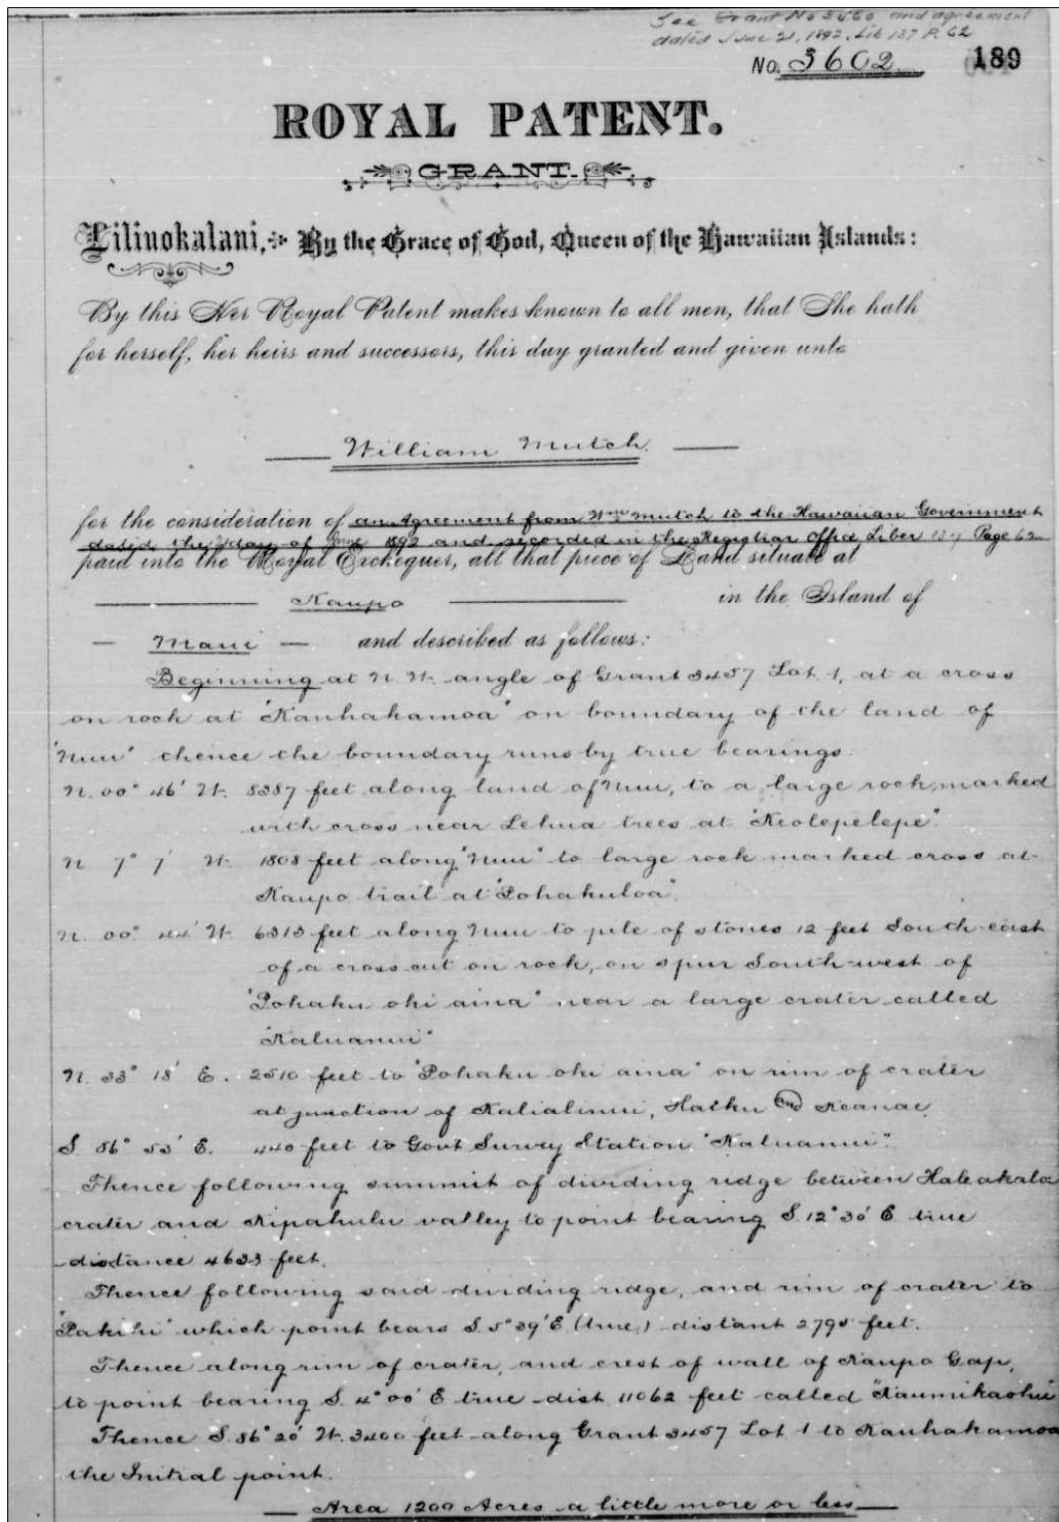 See Grant No 3450 and agreement
dated June 21, 1892, Lib 137 P. 62
No. 3602 189
ROYAL PATENT.
GRANT.
Liliuokalani, By the Grace of God, Queen of the Hawaiian Islands:
By this Her Royal Patent makes known to all men, that She hath
for herself, her heirs and successors, this day granted and given unto
William Mutch.
for the consideration of an Agreement from Wm Mutch to the Hawaiian Government
dated the day of June 1892 and recorded in the Registrar Office Liber 137 Page 62
paid into the Royal Exchequer, all that piece of Land situate at
Kaupo in the Island of
Maui and described as follows:
Beginning at N. W. angle of Grant 3457 Lot 1, at a cross
on rock at "Kauhakamoa" on boundary of the land of
"Nuu" thence the boundary runs by true bearings.
N. 00° 46' W. 8387 feet along land of Nuu, to a large rock, marked
with cross near Lehua trees at "Keolepelepe".
N 7° 7' W. 1808 feet along "Nuu" to large rock marked cross at
Kaupo trail at "Pohakuloa".
N. 00° 44' W. 6313 feet along Nuu to pile of stones 12 feet South-east
of a cross cut on rock, on spur South-west of
"Pohaku oki aina" near a large crater called
"Kaluanui"
N. 33° 18' E. 2510 feet to "Pohaku oki aina" on rim of crater
at junction of Kalialinui, Haiku and Keanae.
S 86° 53' E. 440 feet to Govt Survey Station "Kaluanui".
Thence following summit of dividing ridge between Haleakala
crater and Kipahulu valley to point bearing S. 12° 30' E. true
distance 4633 feet.
Thence following said dividing ridge, and rim of crater to
"Pakihi" which point bears S 5° 39' E (true) distant 2795 feet.
Thence along rim of crater, and crest of wall of Kaupo Gap,
to point bearing S. 4° 00' E true dist. 11062 feet called "Kaumikaohu"
Thence S. 86° 20' W. 3400 feet along Grant 3457 Lot 1 to Kauhakamoa
the Initial point.
Area 1200 Acres a little more or less